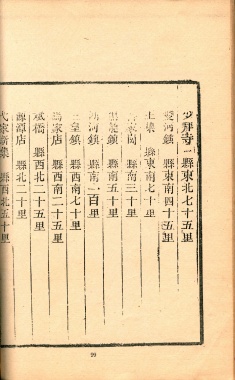 少拜寺 縣東北七十五里
河鎮 縣東南四十五里
集 縣東南七十里
縣南三十里
龍鎮 縣南五十里
河鎮 縣南一百里
皇鎮 縣西南七十里
家店 縣西南二十里
橋 縣西北二十五里
源潭店 縣北二十里
大家新集 縣西北五十里
99